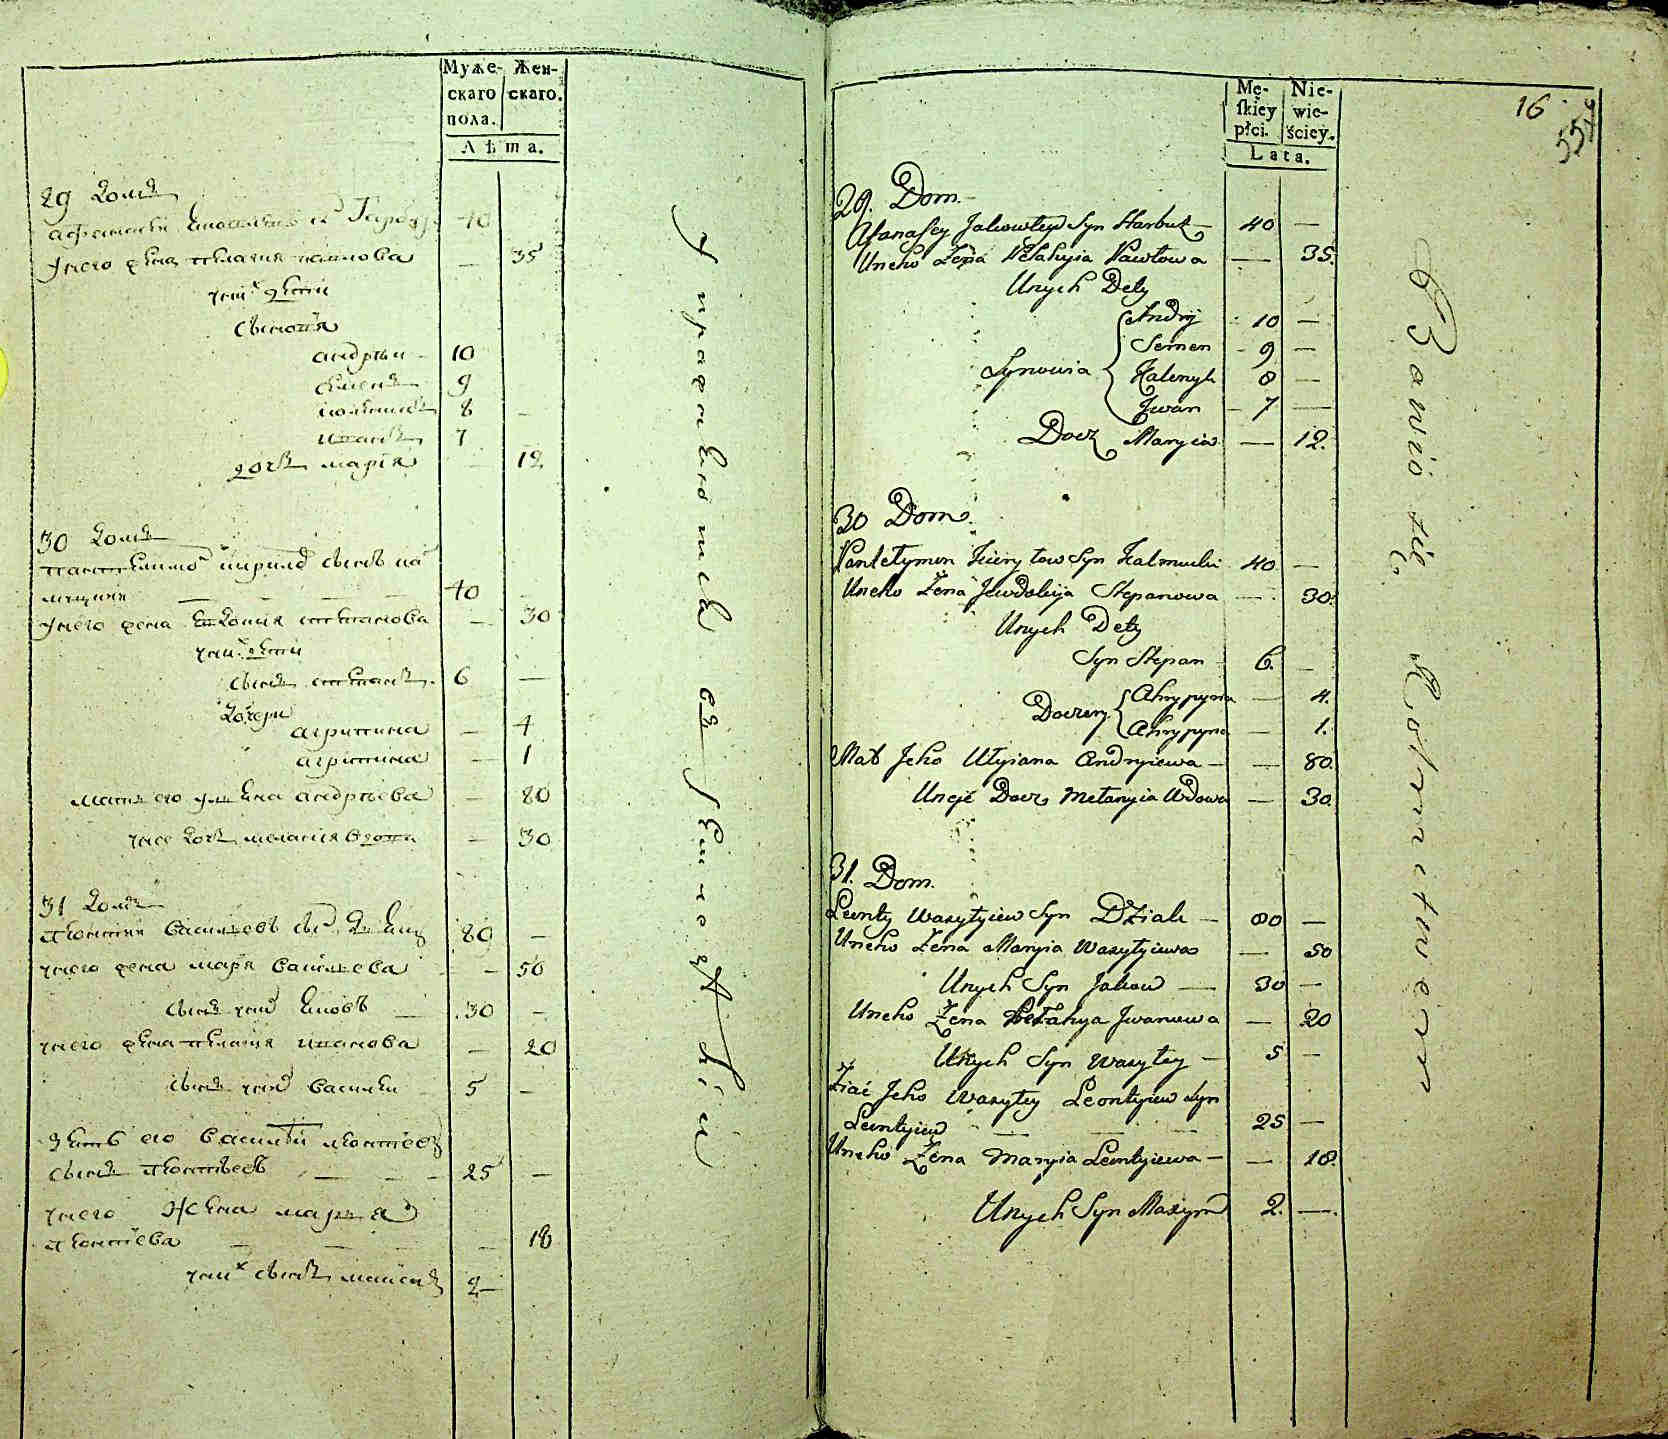 Муже-
скаго
пола.
Жен-
скаго.
Лѣта.
29 Домъ
40
Унего жена пелагия павлова — 35
уних дети
сыновя
андрѣи 10
семенъ 9
8 —
иванъ 7
дочь мария — 12
30 Домъ
сынъ
40 —
Унего жена Евдокия степанова — 30
уних дети
сынъ степанъ 6 —
Дочери
агрипина — 4
агрипина — 1
мать его улияна андрѣева — 80
унее дочь мелания вдова — 30
31 Домъ
Леонтий васильевъ сынъ 80 —
унего жена мария васильева — 50
сынъ яковъ 30 —
унего жена пелагия иванова — 20
сынъ василий 5 —
зять его василий леонтиев
сынъ леонтьевъ 25 —
унего жена мария
леонтиева — 18
уних сынъ максимъ 2 —
Упражняются въ земледѣлии
Mę-
skiey
płci.
Nie-
wie-
ściey.
Lata.
16
29. Dom.
Afanasey Jakowlew Syn Harbuz — 40 —
Uneho Żena Pelahyia Pawłowa — 35.
Unych Dety
Synowia
Andrij 10 —
Semen 9 —
Kalenyk 8 —
Jwan 7 —
Docz Maryia — 12.
30 Dom.
Pantełymon Kiryłow Syn Kalmuckі 40 —
Uneho Żena Jewdokija Stepanowa — 30.
Unych Dety
Syn Stepan 6. —
Doczery
Ahrypyna — 4.
Ahrypyna — 1.
Mat Jeho Ułyiana Andryiewa — 80.
Uneje Docz Mełanyia Udowa — 30.
31. Dom.
Leonty Wasyłyiew Syn 80 —
Uneho Żena Maryia Wasyłyiewa — 50
Unych Syn Jakow — 30 —
Uneho Żena Pełahya Jwanowa — 20
Unych Syn Wasyłey — 5 —
Ziać Jeho Wasyłey Leontyiew Syn
Leontyiew 25 —
Uneho Żena Maryia Leontyiewa — 18.
Unych Syn Maxym 2. —
Bawią się Rolnictwem